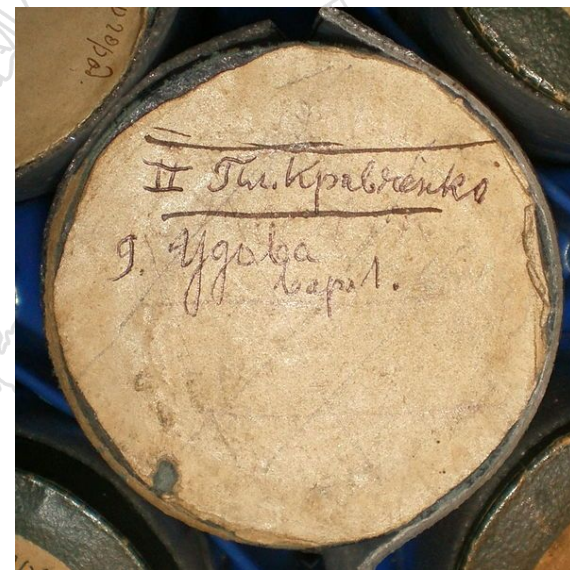 II Гн. Кравченко
9. Удова
вар. 1.